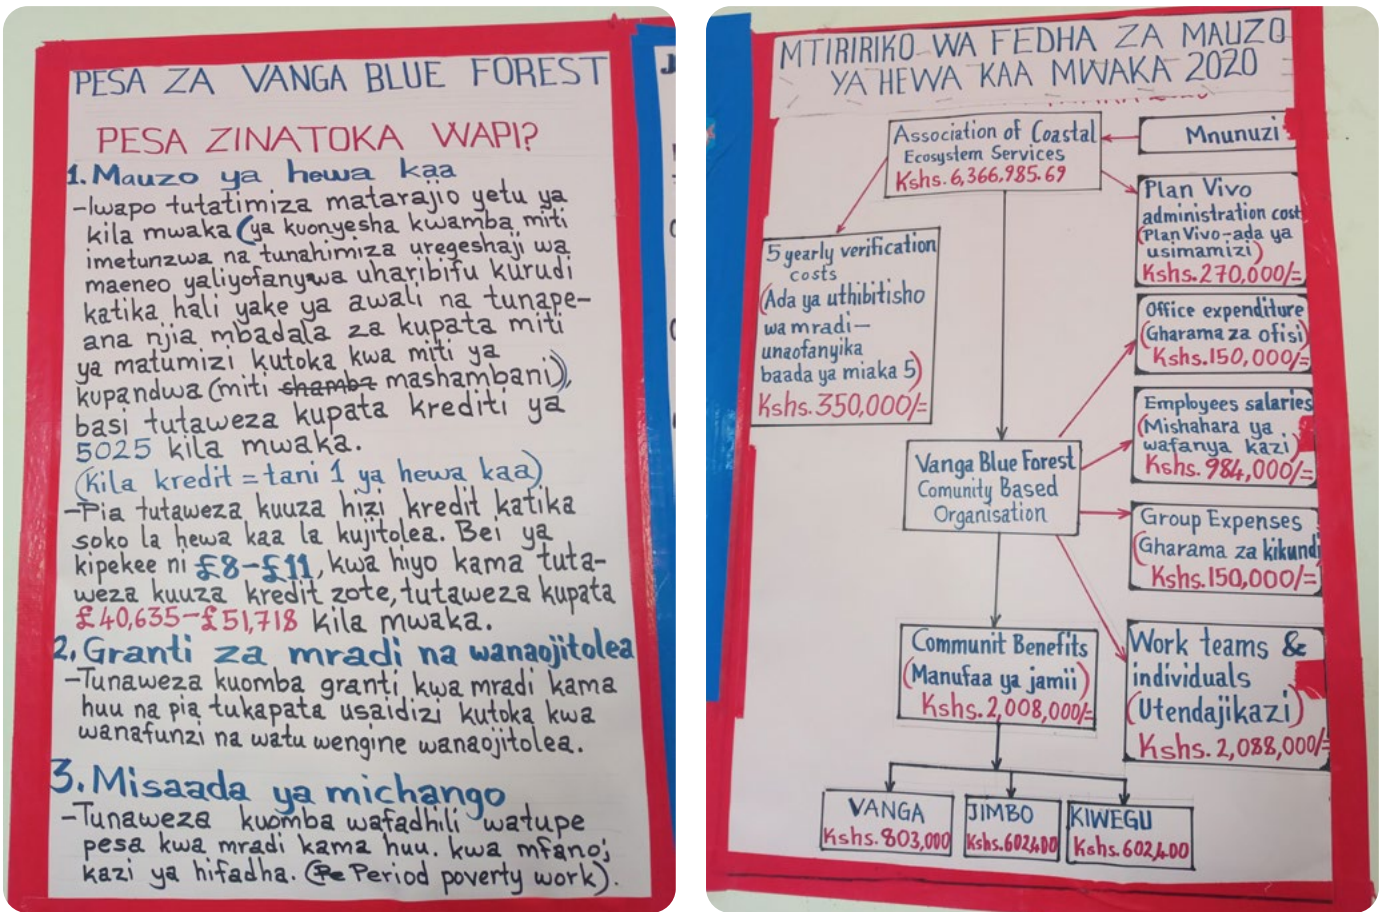 PESA ZA VANGA BLUE FOREST
PESA ZINATOKA WAPI?
1. Mauzo ya hewa kaa
-Iwapo tutatimiza matarajio yetu ya
kila mwaka (ya kuonyesha kwamba miti
imetunzwa na tunahimiza uregeshaji wa
maeneo yaliyofanywa uharibifu kurudi
katika hali yake ya awali na tunape-
ana njia mbadala za kupata miti
ya matumizi kutoka kwa miti ya
kupandwa (miti shamba mashambani)),
basi tutaweza kupata krediti ya
5025 kila mwaka.
(Kila kredit = tani 1 ya hewa kaa)
-Pia tutaweza kuuza hizi kredit katika
soko la hewa kaa la kujitolea. Bei ya
kipekee ni £8-£11, kwa hiyo kama tuta-
weza kuuza kredit zote, tutaweza kupata
£40,635-£51,718 kila mwaka.
2. Granti za mradi na wanaojitolea
-Tunaweza kuomba granti kwa mradi kama
huu na pia tukapata usaidizi kutoka kwa
wanafunzi na watu wengine wanaojitolea.
3. Misaada ya michango
-Tunaweza kuomba wafadhili watupe
pesa kwa mradi kama huu. kwa mfano;
kazi ya hifadha. (Pe Period poverty work).
MTIRIRIKO WA FEDHA ZA MAUZO
YA HEWA KAA MWAKA 2020
Association of Coastal
Ecosystem Services
Kshs. 6,366,985.69
Mnunuzi
Plan Vivo
administration cost
(Plan Vivo-ada ya
usimamizi)
Kshs. 270,000/=
5 yearly verification
costs
(Ada ya uthibitisho
wa mradi-
unaofanyika
baada ya miaka 5)
Kshs. 350,000/=
Office expenditure
(Gharama za ofisi)
Kshs. 150,000/=
Employees salaries
(Mishahara ya
wafanya kazi)
Kshs. 984,000/=
Vanga Blue Forest
Comunity Based
Organisation
Group Expenses
(Gharama za kikundi
Kshs. 150,000/=
Communit Benefits
(Manufaa ya jamii)
Kshs. 2,008,000/=
Work teams &
individuals
(Utendajikazi)
Kshs. 2,088,000/=
VANGA
Kshs. 803,000
JIMBO
Kshs. 602,400
KIWEGU
Kshs. 602,400